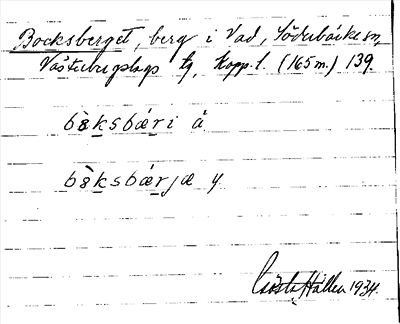 Bocksberget, berg i Vad, Söderbärke sn,
Västerbergslags tg, Kopp. l. (165 m.) 139
bò̀ksbæri å
bò̀ksbárjæ y
Gösta Hallén 1934.